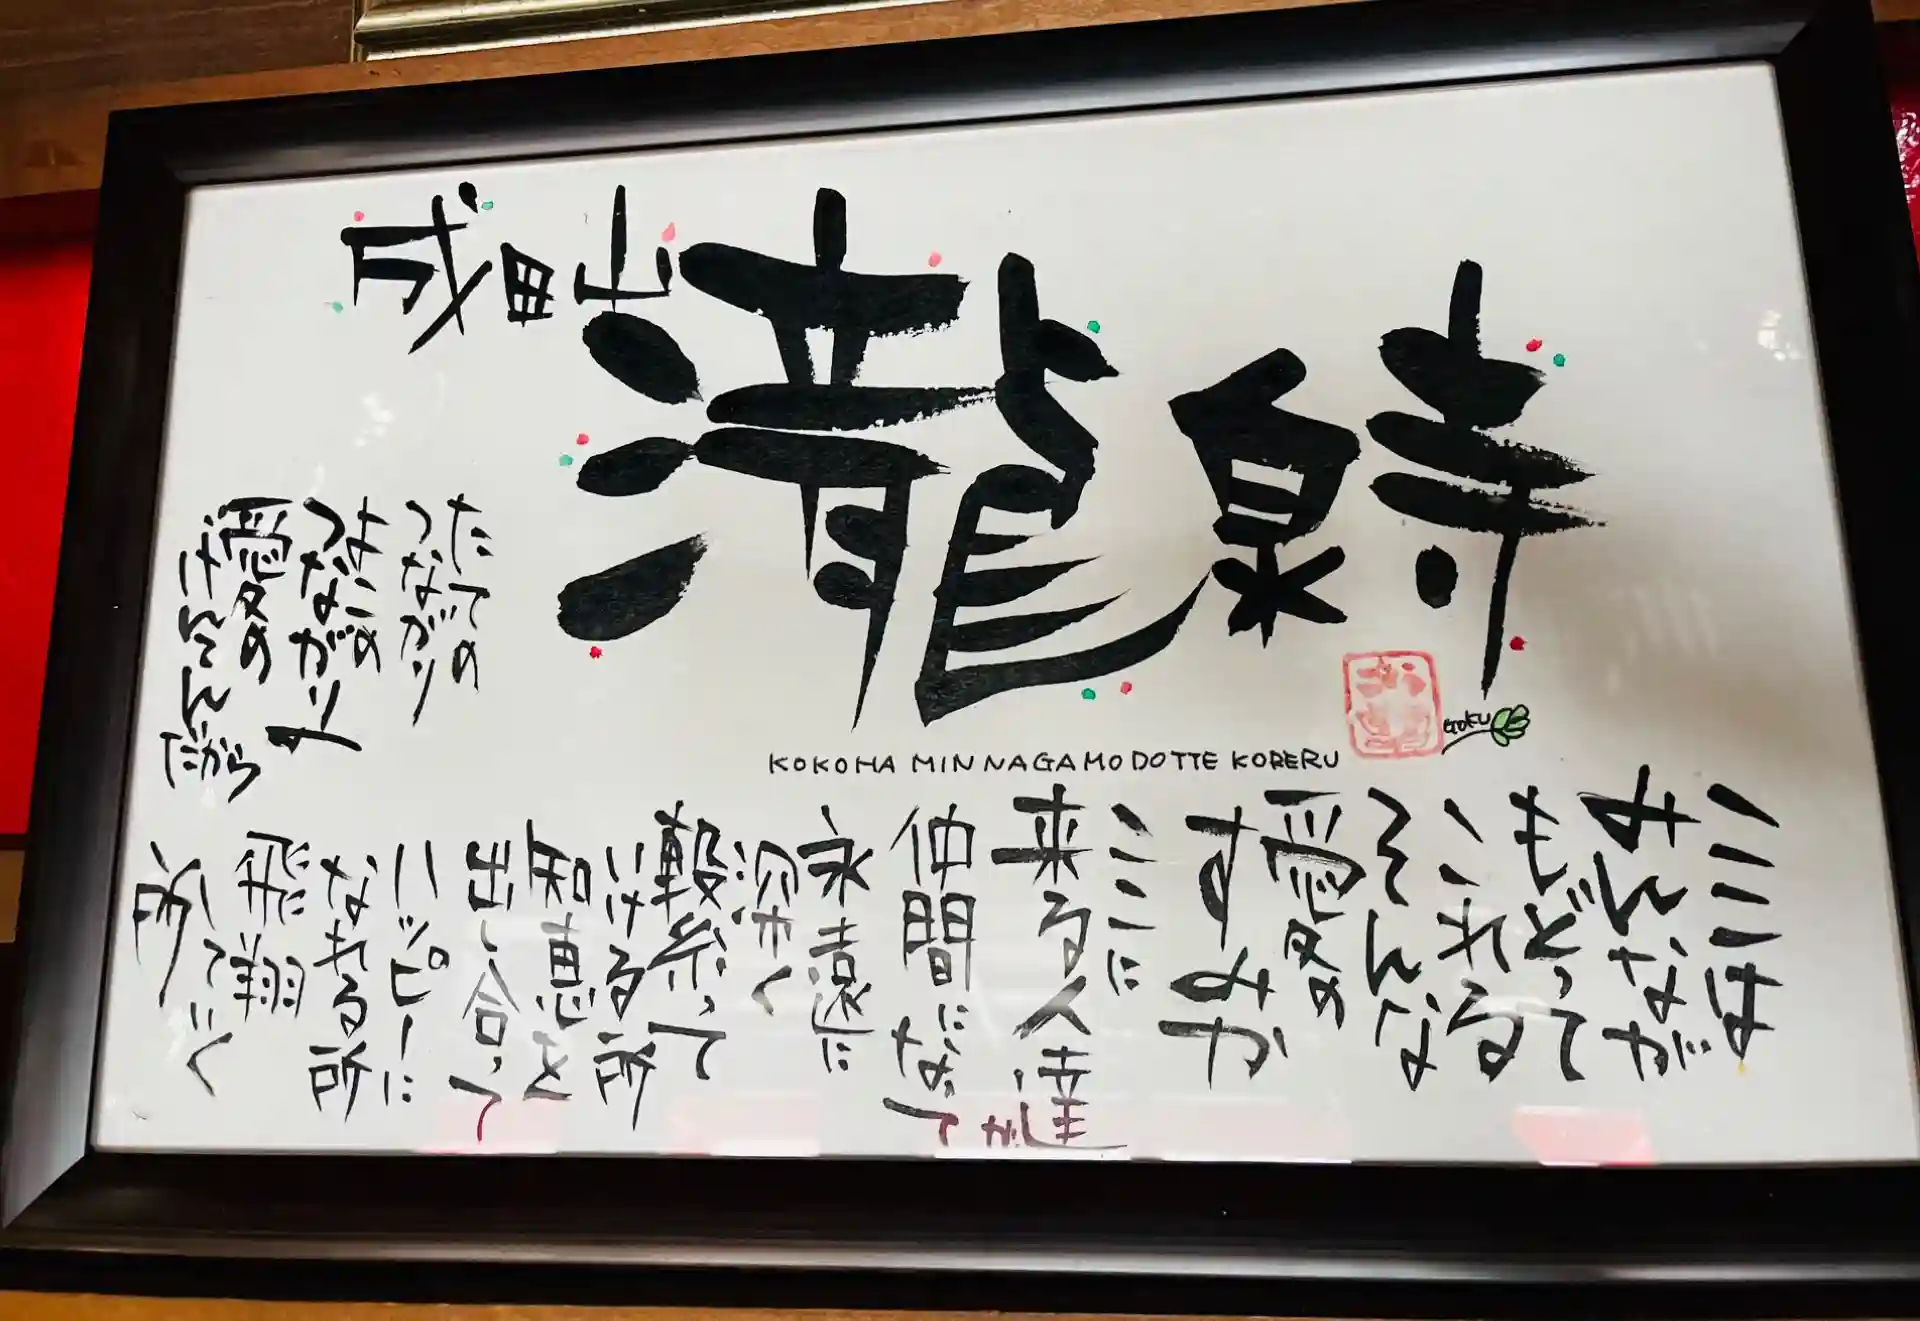 成田山
瀧泉寺
KOKOHA MINNAGAMODOTTE KORERU
GOKU
ここは
みんなが
もどって
これる
そんな
愛の
すみか
ここに
来る人達が
仲間になって
永遠に
深く
繋って
いける所
知恵を
出し合って
ハッピーに
なれる所
飛翔
していく
所
たての
つながり
よこの
つながり
愛の
けんしんだから